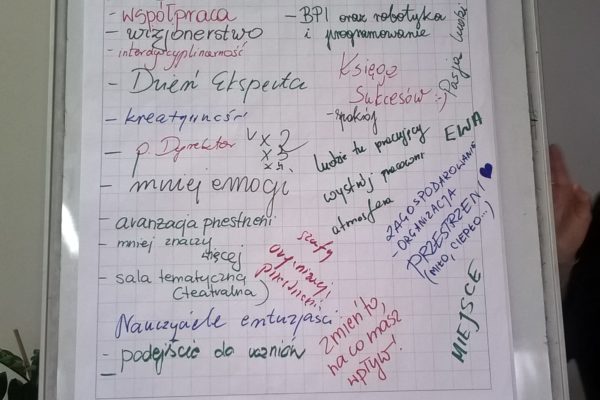 - współpraca
- wizjonerstwo
- interdyscyplinarność
- Dzień Eksperta
- kreatywność
- p. Dyrektor
v x 2
x 2
x 5.
- mniej emogi
- aranżacja przestrzeni
- mniej znaczy
więcej
- sala tematyczna
(teatralna)
Nauczyciele entuzjaści
- podejście do uczniów
-
- BPI oraz robotyka
i programowanie
Pasja ludzi
Księga
Sukcesów :-)
- spokój
EWA
ludzie tu pracujący
wystrój pracowni
atmosfera
ZAGOSPODAROWANIE
- ORGANIZACJA
PRZESTRZENI
(MIŁO, CIEPŁO...)
szafy
organizacji
przestrzeni
zmień to,
na co masz
wpływ!
MIEJSCE